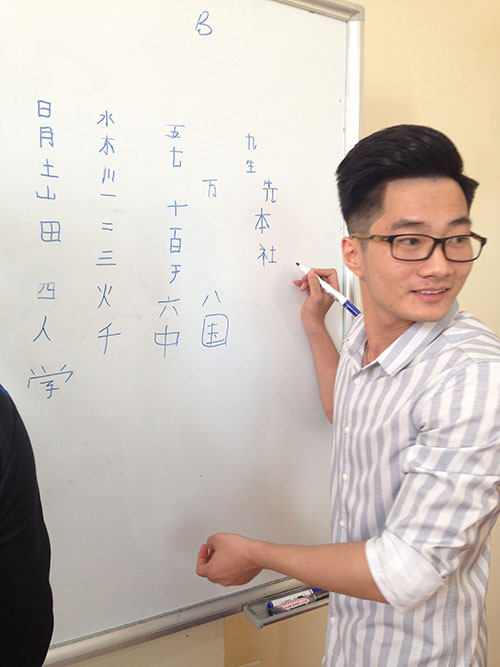 B
日月土山田四人学
水木川一二三火千
五七十百六中
万八国
九生
先本社